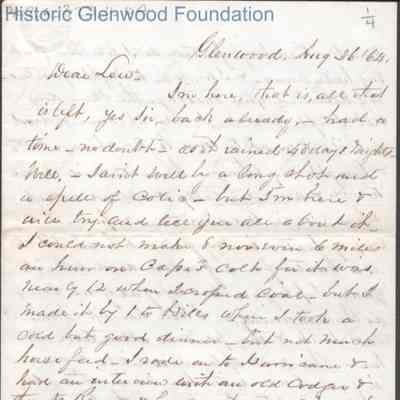 Historic Glenwood Foundation
1/4
Glenwood, Aug 26 '64.
Dear Lew-
I'm here, that is, all that
is left, yes Sir, back already, - had a
time - no doubt - as it rained 4 days & nights
Well, - I aint well by a long shot and
a spell of Colic - but I'm here &
will try and tell you all about it.
I could not make 8 nor even 6 miles
an hour on Cap's colt for it was
nearly 12 when I crossed - but I
made it by 1 to when I took a
cold but good dinner - but not much
horse feed - I rode on to &
had an interview with an old Codger &